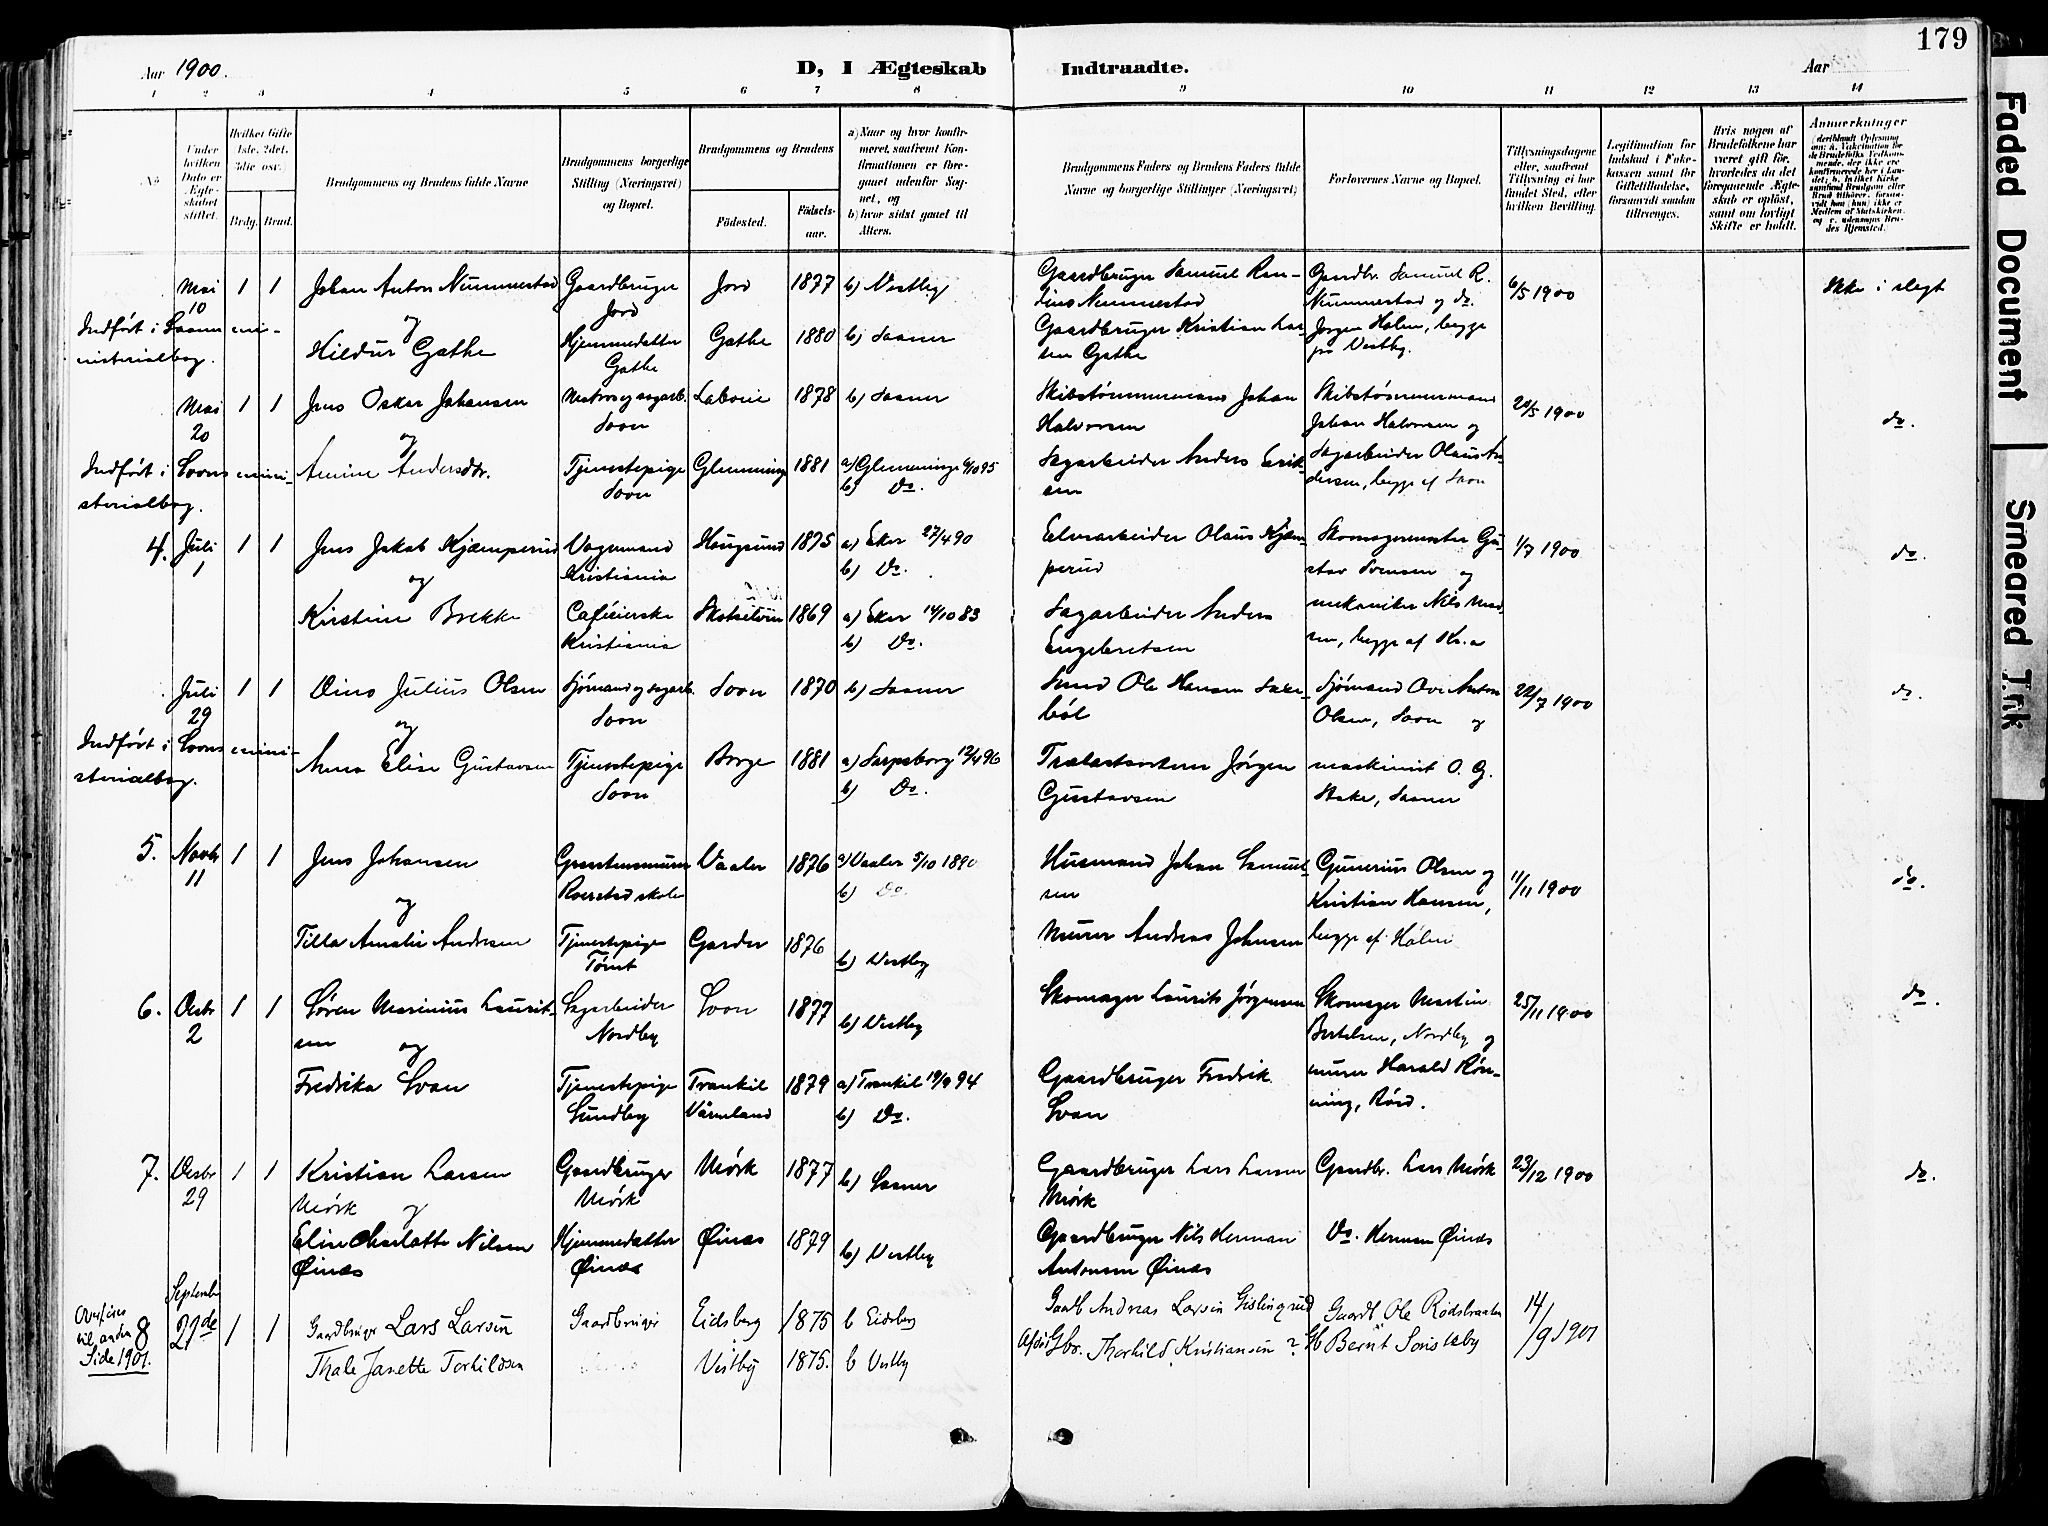 179
Aar 1900.
D, I Ægteskab Indtraadte.
Aar
1 2 3 4 5 6 7 8 9 10 11 12 13 14
No
Under hvilken Dato er Ægteskabet stiftet.
Hvilket Gifte 1ste, 2det, 3die osv.
Brdg. Brud.
Brudgommens og Brudens fulde Navne
Brudgommens borgerlige Stilling (Næringsvei) og Bopæl.
Brudgommens og Brudens
Födested. Födselsaar.
a) Naar og hvor konfirmeret, saafremt Konfirmationen er foregaaet udenfor Sognet, og
b) hvor sidst gaaet til Alters.
Brudgommens Faders og Brudens Faders fulde Navne og borgerlige Stillinger (Næringsvei)
Forlovernes Navne og Bopæl.
Tillysningsdagene eller, saafremt Tillysning ei har fundet Sted, efter hvilken Bevilling.
Legitimation for Indskud i Enkekassen samt for Giftetilladelse, forsaavidt saadan tiltrænges.
Hvis nogen af Brudefolkene har været gift för, hvorledes da det foregaaende Ægteskab er oplöst, samt om lovligt Skifte er holdt.
Anmerkninger
Mai 10 1 1 Johan Anton Nummestad Gaardbruger Jord Jord 1877 b) Vestby Gaardbruger Samuel Nummestad Gaardbr. Samuel R. Nummestad og do. 6/5 1900 Ikke i slegt
og
Indført i Saaner ministerialbog.
Hildur Gathe Hjemmedatter Gathe Gathe 1880 b) Saaner Gaardbruger Kristian Larsen Gathe Jørgen Holm, begge på Vestby.
Mai 20 1 1 Jens Oskar Johansen Matros og sagarb. Soon Laboie 1878 b) Saaner Skibstømmermand Johan Halvorsen Skibstømmermand Johan Halvorsen og 20/5 1900 do.
og
Indført i Soons ministerialbog.
Amine Andersdtr. Tjenestepige Soon Glemminge 1881 a) Glemminge 6/10 95 b) Do. Sagarbeider Anders Eriksen Sagarbeider Olaus Andersen, begge af Soon
4. Juli 1 1 1 Jens Jakob Kjæmperud Vognmand Kristiania Hougsund 1875 a) Eker 27/4 90 b) Do. Elvearbeider Olaus Kjæmperud Skomagermester Gustav Svensen og 1/7 1900 do.
og
Kirstine Brekke Caféeierske Kristiania Skotselven 1869 a) Eker 14/10 83 b) Do. Sagarbeider Anders Engebretsen mekaniker Nils Madsen, begge af Kr.a
Juli 29 1 1 Dines Julius Olsen Sjømand og sagarb. Soon Soon 1870 b) Saaner Smed Ole Hansen Sjømand Ove Anton Olsen, Soon og 22/7 1900 do.
og
Indført i Soons ministerialbog.
Anna Elise Gustavsen Tjenestepige Soon Borge 1881 a) Sarpsborg 12/4 96 b) Do. Trælastsorterer Jørgen Gustavsen maskinist O. G. Stake, Saaner
5. Novbr 11 1 1 Jens Johansen Graastensmurer Roerstad skole Vaaler 1876 a) Vaaler 5/10 1890 b) Do. Husmand Johan Samuelsen Gunerius Olsen og Kristian Hansen, 11/11 1900 do.
og
Tilla Amalie Andresen Tjenestepige Tømt Garder 1876 b) Vestby Murer Andreas Johnsen begge af Hølen
6. Desbr 2 1 1 Søren Marinius Lauritsen Sagarbeider Nordby Soon 1877 b) Vestby Skomager Laurits Jørgensen Skomager Martin Bertelsen, Nordby og 25/11 1900 do.
og
Fredrika Svan Tjenestepige Sundby Trankil Värmland 1879 a) Trankil 19/9 94 b) Do. Gaardbruger Fredrik Svan murer Harald Rønning, Rød.
7. Desbr 29 1 1 Kristian Larsen Mørk Gaardbruger Mørk Mørk 1877 b) Saaner Gaardbruger Lars Larsen Mørk Gaardbr. Lars Mørk 23/12 1900 do.
og
Elise Charlotte Nilsen Øinæs Hjemmedatter Øinæs Øinæs 1879 b) Vestby Gaardbruger Nils Herman Antonsen Øinæs Do. Herman Øinæs
Overføres til anden Side 1901.
8 September 21de 1 1 Gaardbruger Lars Larsen Gaardbruger Eidsberg 1875 b Eidsberg Gaardb Andreas Larsen Gislingrud Gaardb. Ole Rødsbraaten 14/9 1901
Thale Janette Torkildsen Vestby 1875. b Vestby Gbr. Thorkild Kristiansen Gb Bernt Sonsteby
Faded Document
Smeared Trk